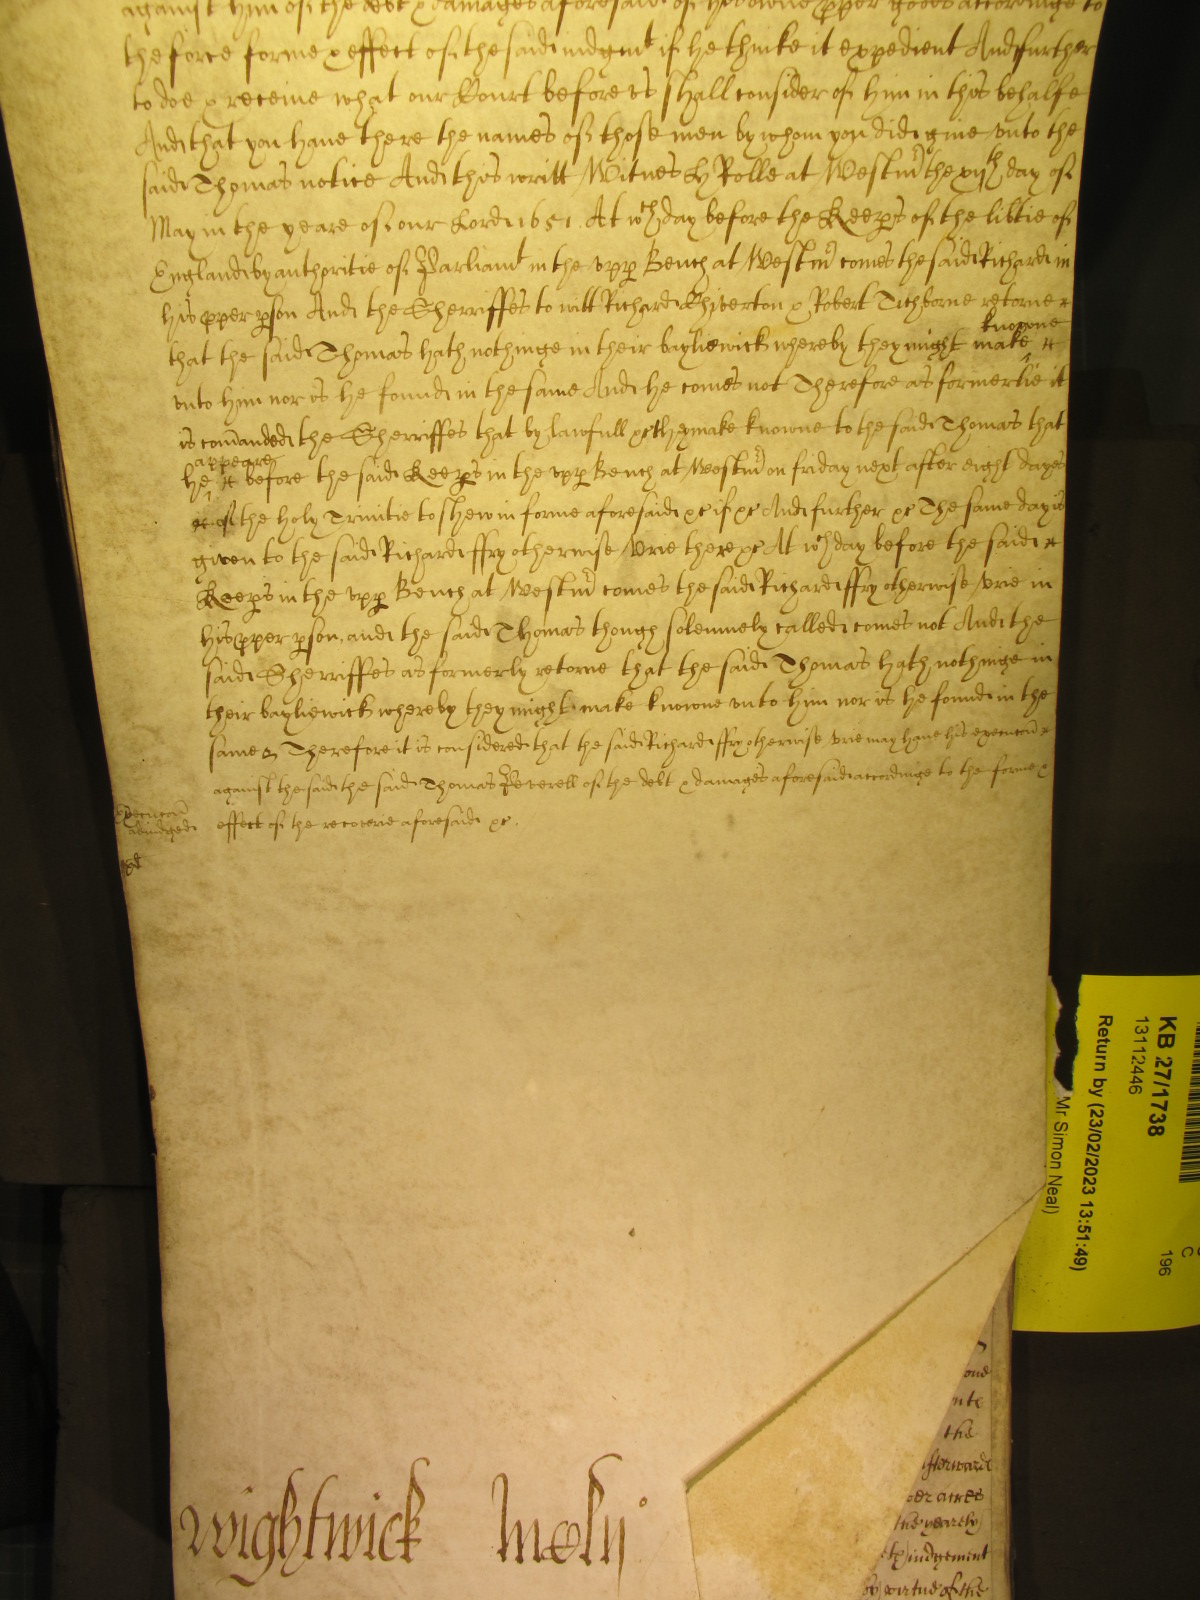 against him of the debt & damages aforesaid of his owne pper goods accordinge to
the force forme & effect of the said iudgmt if he thinke it expedient And further
to doe & receive what our Court before us shall consider of him in this behalfe
And that you have there the names of those men by whom you did give unto the
said Thomas notice And this writt Witnes H Rolle at Westmr the xijth day of
May in the yeare of our Lord 1651. At wch day before the Keeps of the libtie of
England by authoritie of Parliamt in the upp Bench at Westmr comes the said Richard in
his pper pson And the Sherriffes to witt Richard Chiverton & Robert Tichborne retorne
that the said Thomas hath nothinge in their bayliewick whereby they might make knowne
unto him nor is he found in the same And he comes not Therefore as formerlie it
is comanded the Sherriffes that by lawfull &c they make knowne to the said Thomas that
he appeare before the said Keeps in the upp Bench at Westmr on friday next after eight dayes
of the holy Trinitie to shew in forme aforesaid &c if &c And further &c The same day is
given to the said Richard ffry otherwise Urie there &c At wch day before the said
Keeps in the upp Bench at Westmr comes the said Richard ffry otherwise Urie in
his pper pson, and the said Thomas though solemnely called comes not And the
said Sherriffes as formerly retorne that the said Thomas hath nothinge in
their bayliewick whereby they might make knowne unto him nor is he found in the
same Therefore it is considered that the said Richard ffry otherwise Urie may have his execucon
against the said the said Thomas Peverell of the debt & damages aforesaid accordinge to the forme &
effect of the recoverie aforesaid &c.
Execucon
adiudged
Wightwick
KB 27/1738
13112446
Return by (23/02/2023 13:51:49)
Mr Simon Neal)
C
196
one
the
afterward
acres
the yearely
iudgement
by virtue of the